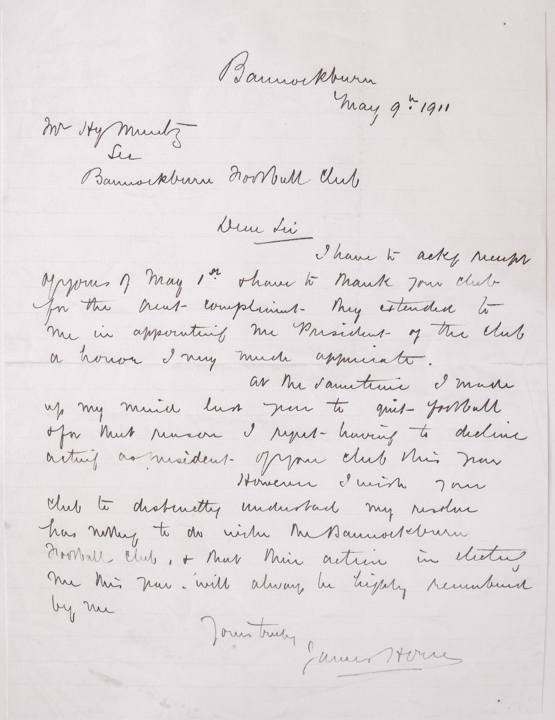 Bannockburn
May 9th 1911
Mr Hy Muntz
Sec
Bannockburn Football Club
Dear Sir
I have to ackg receipt
of yours of May 1st & have to thank your club
for the great compliment they extended to
me in appointing me President of the club
a honor I very much appreciate.
at the sametime I made
up my mind last year to quit football
& for that reason I regret having to decline
acting as president of your club this year
However I wish your
club to distinctly understand my resolve
has nothing to do with the Bannockburn
Football Club, & that their action in electing
me this year will always be highly remembered
by me
Yours truly
James Horne